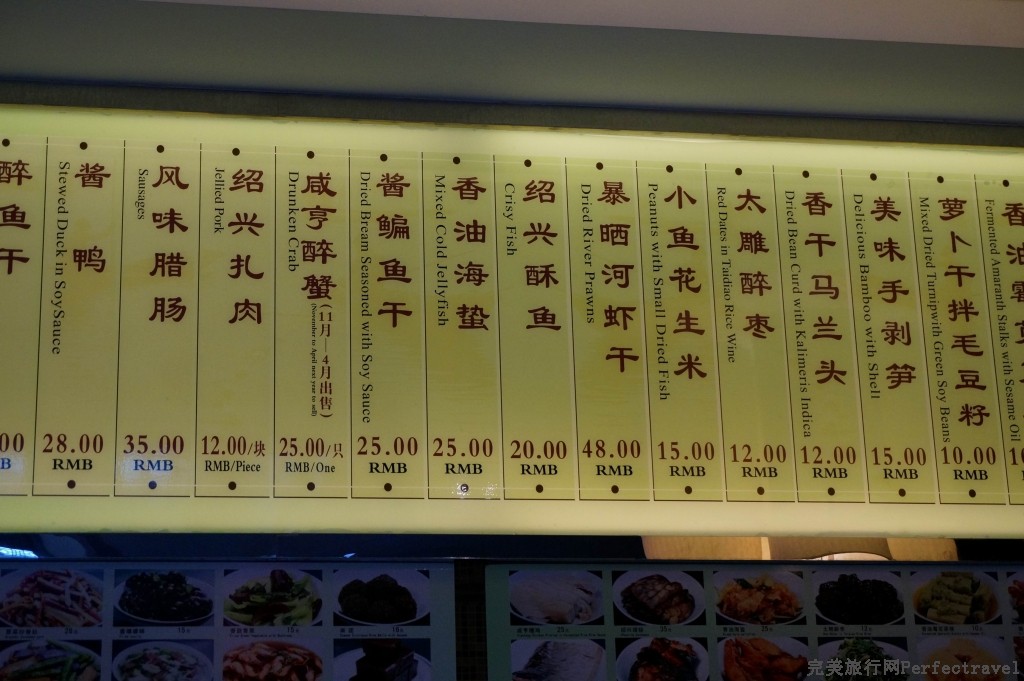 醉鱼干
00
B
酱鸭
Stewed Duck in SoySauce
28.00
RMB
风味腊肠
Sausages
35.00
RMB
绍兴扎肉
Jellied Pork
12.00/块
RMB/Piece
咸亨醉蟹(11月—4月出售)
Drunken Crab
(November to April next year to sell)
25.00/只
RMB/One
酱鳊鱼干
Dried Bream Seasoned with Soy Sauce
25.00
RMB
香油海蛰
Mixed Cold Jellyfish
25.00
RMB
绍兴酥鱼
Crisy Fish
20.00
RMB
暴晒河虾干
Dried River Prawns
48.00
RMB
小鱼花生米
Peanuts with Small Dried Fish
15.00
RMB
太雕醉枣
Red Dates in Taidiao Rice Wine
12.00
RMB
香干马兰头
Dried Bean Curd with Kalimeris Indica
12.00
RMB
美味手剥笋
Delicious Bamboo with Shell
15.00
RMB
萝卜干拌毛豆籽
Mixed Dried Turnipwith Green Soy Beans
10.00
RMB
香油
Fermented Amaranth Stalks with Sesame Oil
完美旅行网Perfectravel